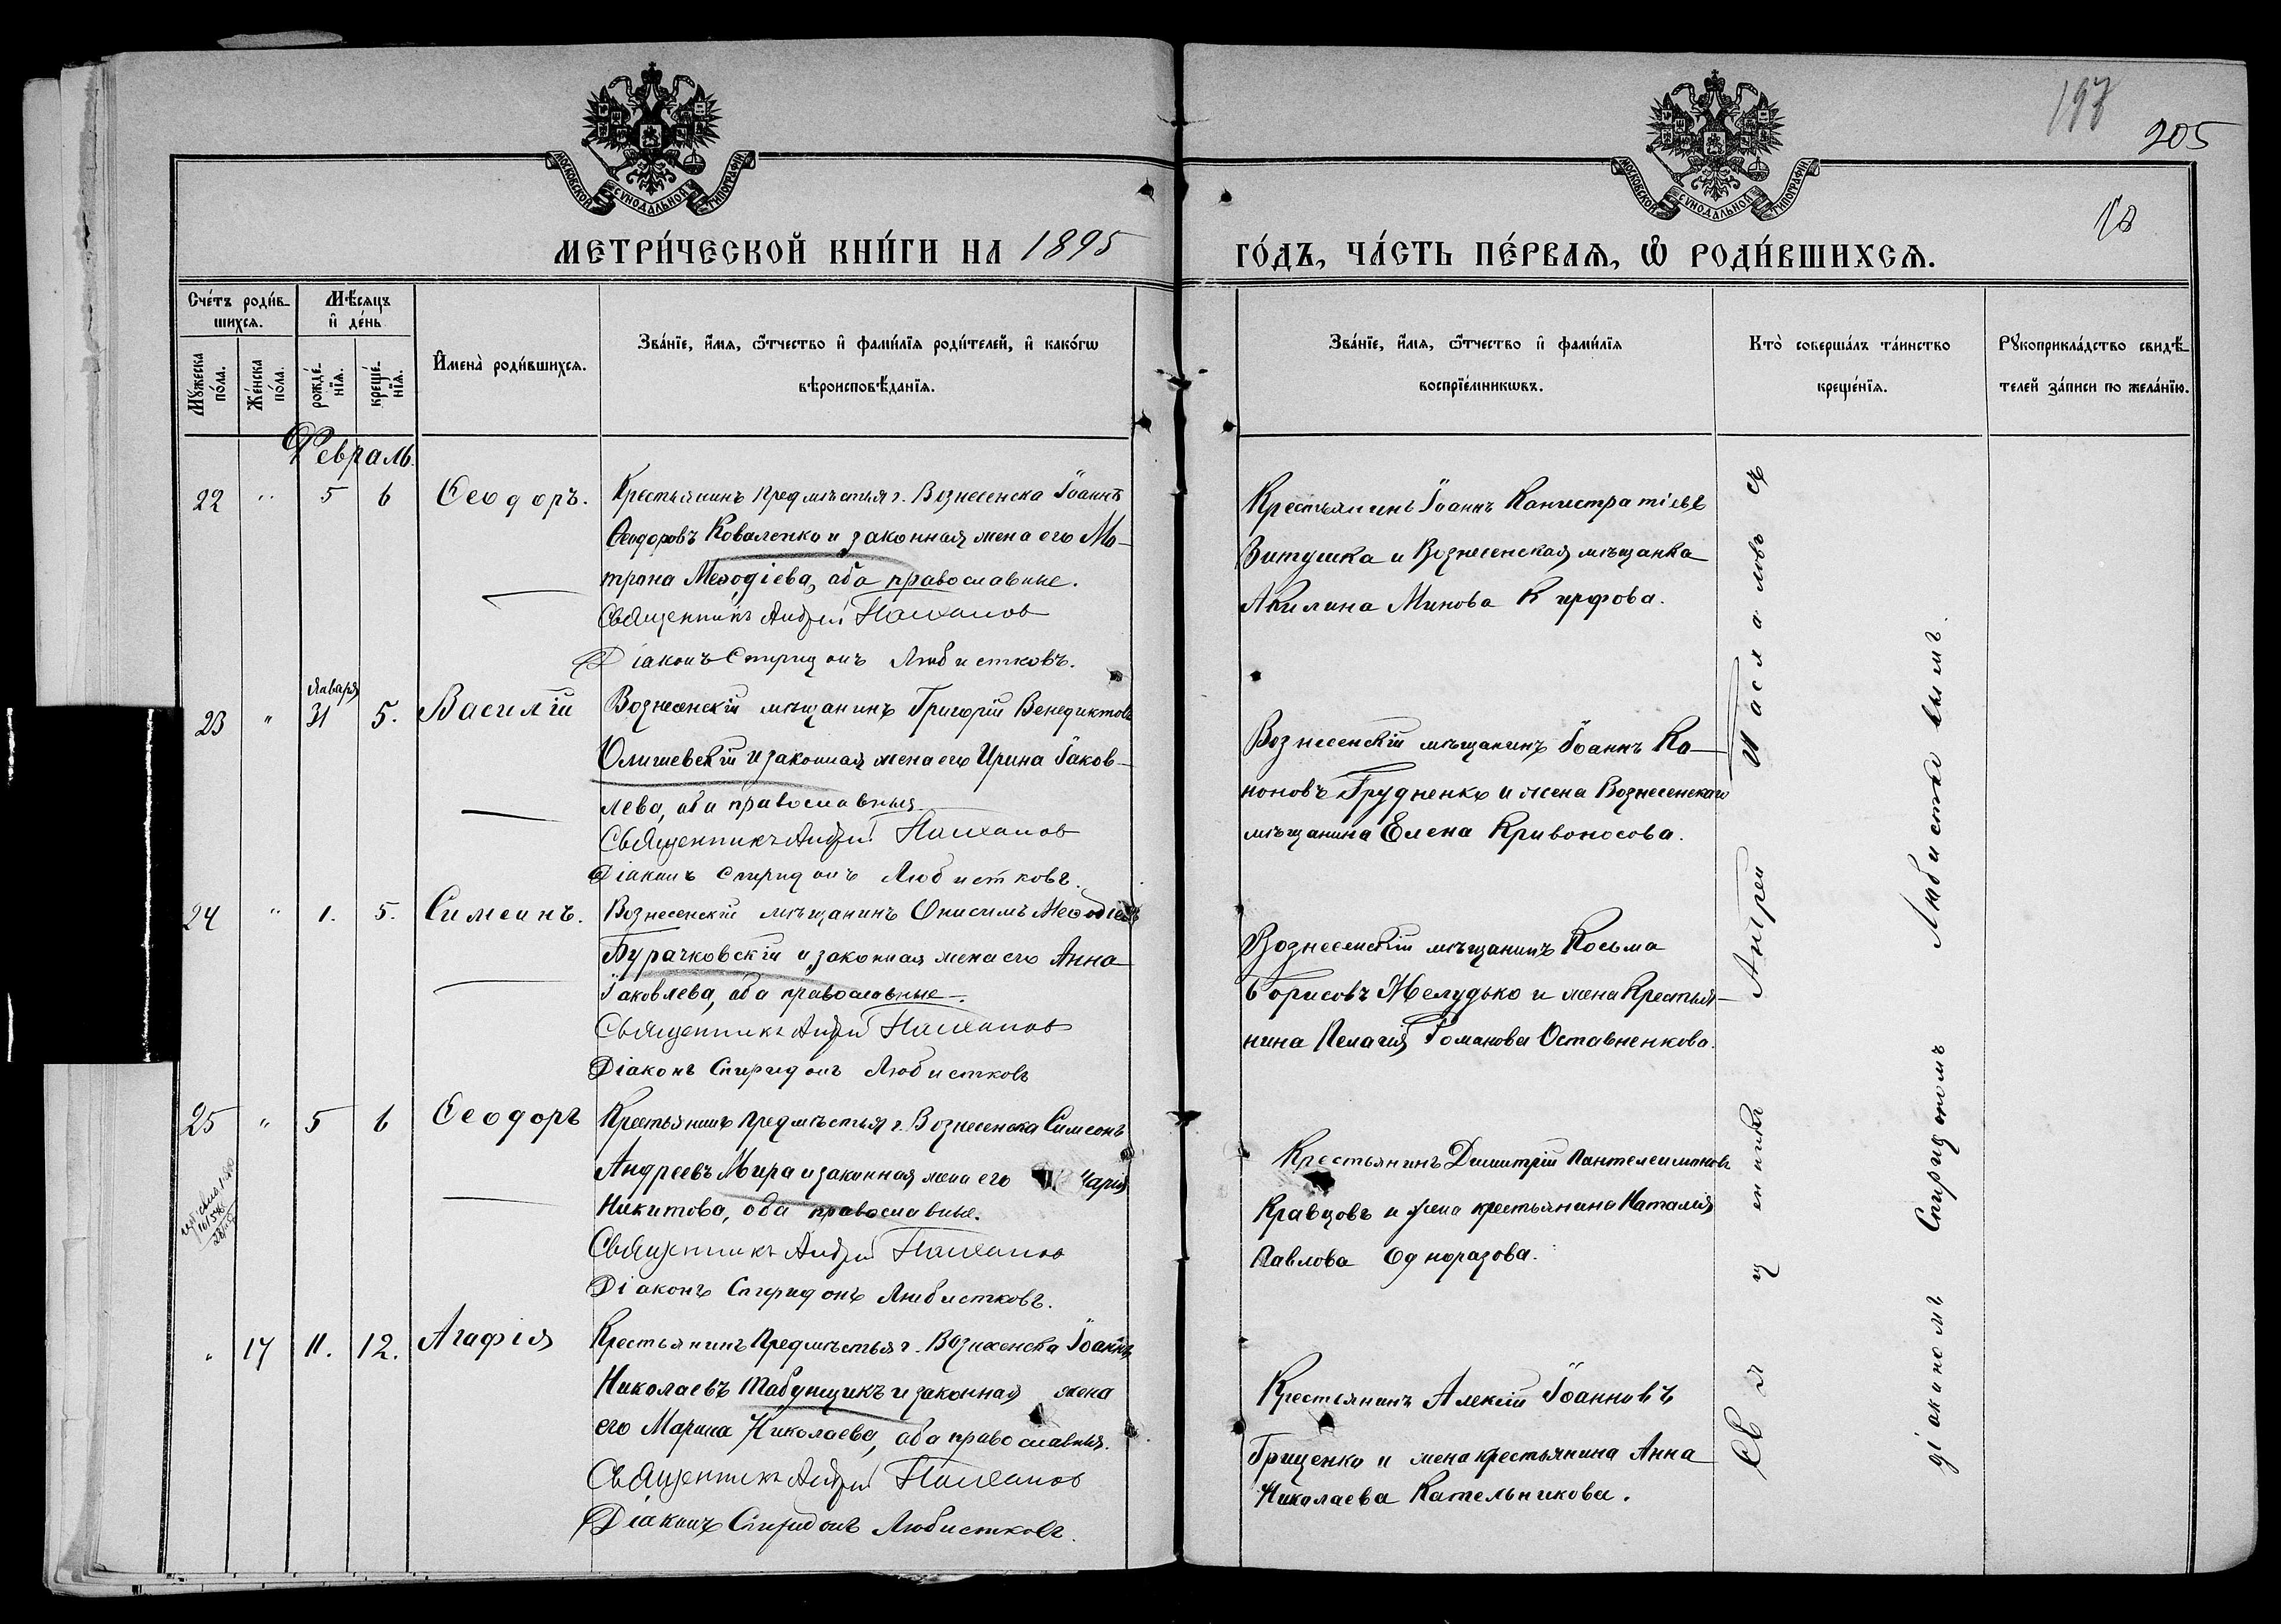 197
205
МОСКОВСКОЙ СѴНОДАЛЬНОЙ ТИПОГРАФІИ
МОСКОВСКОЙ СѴНОДАЛЬНОЙ ТИПОГРАФІИ
МЕТРИ́ЧЕСКОЙ КНИ́ГИ НА 1895
ГО́ДЪ, ЧА́СТЬ ПЕ́РВАѦ, Ѡ҆ РОДИ́ВШИХСѦ.
Сче́тъ роди́в-
шихсѧ.
Мѣ́сѧцъ
и҆ де́нь
Мꙋ́жеска по́ла.
Же́нска по́ла.
рожде́-нїѧ.
креще́-нїѧ.
И҆мена̀ роди́вшихсѧ.
Зва́нїе, и҆́мѧ, ѻ҆́тчество и҆ фами́лїѧ роди́телей, и҆ како́гѡ
вѣроисповѣ́данїѧ.
Зва́нїе, и҆́мѧ, ѻ҆́тчество и҆ фами́лїѧ
воспрїе́мникѡвъ.
Кто̀ соверша́лъ та́инство
креще́нїѧ.
Рꙋкоприкла́дство свидѣ́-
телей за́писи по жела́нїю.
Февраль.
22 " 5 6 Ѳеодоръ.
Крестьянинъ предмѣстья г. Вознесенска Іоаннъ
Ѳеодоровъ Коваленко и законная жена его Ма-
трона Меѳодіева, оба православные.
Священникъ Андрей
Діаконъ Спиридонъ Любистковъ.
Крестьянинъ Іоаннъ Каллистратіевъ
Витушка и Вознесенская мѣщанка
Акилина Минова
Января
23 " 31 5. Василій
Вознесенскій мѣщанинъ Григорій Венедиктовъ
Олишевскій и законная жена его Ирина Іаков-
лева, оба православныя.
Священникъ Андрей
Діаконъ Спиридонъ Любистковъ.
Вознесенскій мѣщанинъ Іоаннъ Ко-
ноновъ Грудненко и жена Вознесенскаго
мѣщанина Елена Кривоносова.
24 " 1. 5. Симеонъ.
Вознесенскій мѣщанинъ Онисимъ Меѳодіевъ
Бурачковскій и законная жена его Анна
Іаковлева, оба православные.
Священникъ Андрей
Діаконъ Спиридонъ Любистковъ
Вознесенскій мѣщанинъ Косьма
Борисовъ Желудько и жена Крестья-
нина Пелагія Романова Оставненкова.
25 " 5 6 Ѳеодоръ
Крестьянинъ предмѣстья г. Вознесенска Симеонъ
Андреевъ Мира и законная жена его Марія
Никитова, оба православные.
Священникъ Андрей
Діаконъ Спиридонъ Любистковъ.
Крестьянинъ Димитрій Пантелеимоновъ
Кравцовъ и жена крестьянина Наталія
Павлова Одноразова.
" 17 11. 12. Агафія
Крестьянинъ Предмѣстья г. Вознесенска Іоаннъ
Николаевъ Табунщикъ и законная жена
его Марина Николаева, оба православныя.
Священникъ Андрей
Діаконъ Спиридонъ Любистковъ.
Крестьянинъ Алексій Іоанновъ
Гриценко и жена крестьянина Анна
Николаева Кательникова.
Священникъ Андрей
діакономъ Спиридономъ Любистковымъ.